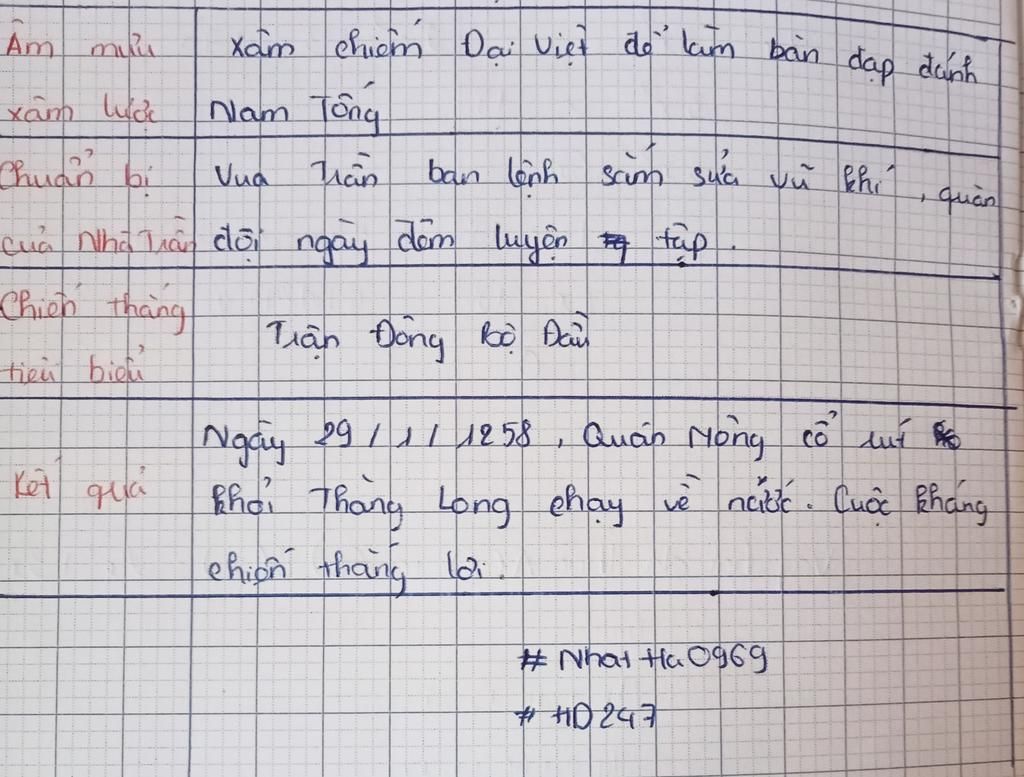 Âm mưu xâm chiếm Đại Việt để làm bàn đạp đánh
xâm lược Nam Tống
Chuẩn bị Vua Trần ban lệnh sắm sửa vũ khí, quân
của Nhà Trần đội ngày đêm luyện tập.
Chiến thắng
Trận Đông Bộ Đầu
tiêu biểu
Ngày 29/1/1258, Quân Mông cổ rút
Kết quả khỏi Thăng Long chạy về nước. Cuộc kháng
chiến thắng lợi.
# Nhat Ha0969
# HD247